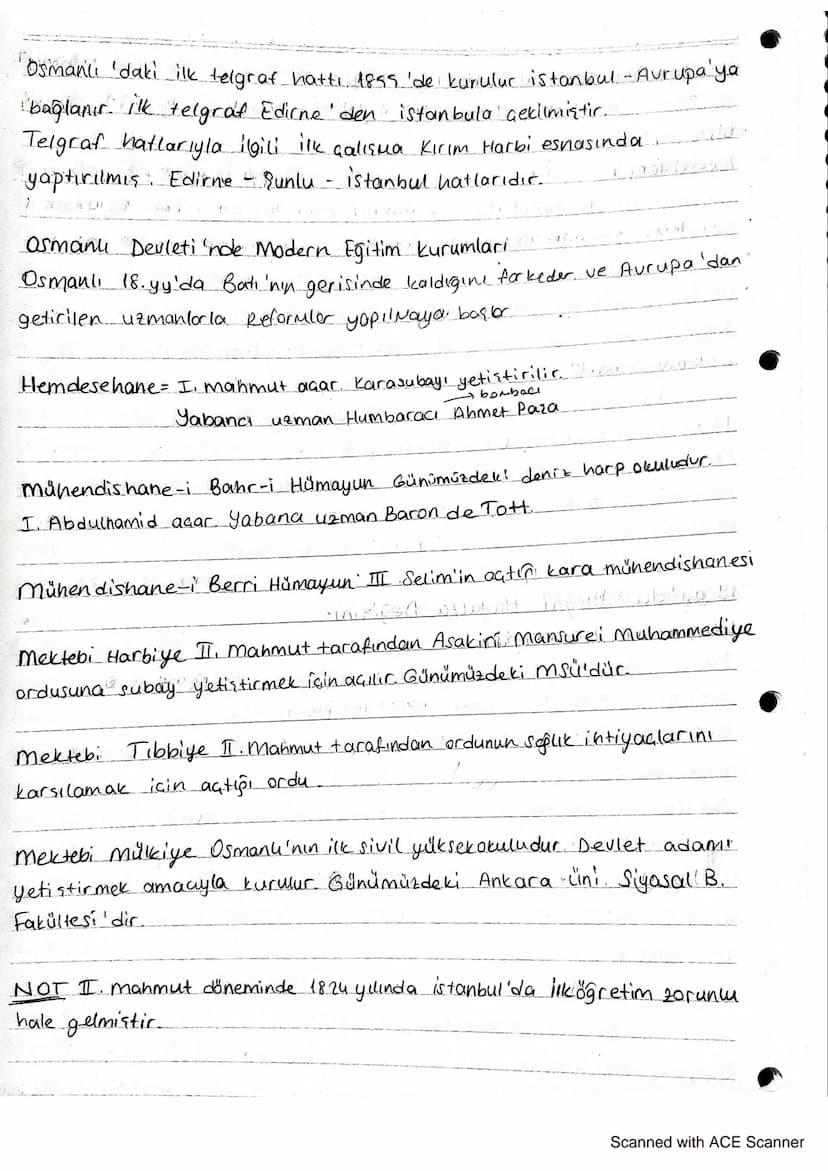 Osmanlı'daki ilk telgraf hattı 1855'de kurulur istanbul - Avrupa'ya
bağlanır. ilk telgraf Edirne'den istanbula çekilmiştir.
Telgraf hatlarıyla ilgili ilk çalışma Kırım Harbi esnasında
yaptırılmış. Edirne - Şunlu - istanbul hatlarıdır.
Osmanlı Devleti'nde Modern Eğitim Kurumları
Osmanlı 18.yy'da Batı'nın gerisinde kaldığını farkeder ve Avrupa'dan
getirilen uzmanlarla Reformlar yapılmaya başlar
Hemdesehane = I. mahmut açar. Karasubayı yetiştirilir.
→ bombacı
Yabancı uzman Humbaracı Ahmet Paza
Mühendishane-i Bahr-i Hümayun Günümüzdeki deniz harp okuludur.
I. Abdulhamid açar Yabancı uzman Baron de Tott.
Mühendishane-i Berri Hümayun III Selim'in açtığı kara mühendishanesi
Mektebi Harbiye II. Mahmut tarafından Asakiri Mansurei Muhammediye
ordusuna subay yetiştirmek için açılır. Günümüzdeki MSÜ'dür.
Mektebi Tıbbiye II. Mahmut tarafından ordunun sağlık ihtiyaçlarını
karşılamak için açtığı ordu.
Mektebi Mülkiye Osmanlı'nın ilk sivil yüksekokuludur. Devlet adamı
yetiştirmek amacıyla kurulur. Günümüzdeki Ankara Üni. Siyasal B.
Fakültesi'dir.
NOT II. mahmut döneminde 1824 yılında istanbul'da ilköğretim zorunlu
hale gelmiştir.
Scanned with ACE Scanner